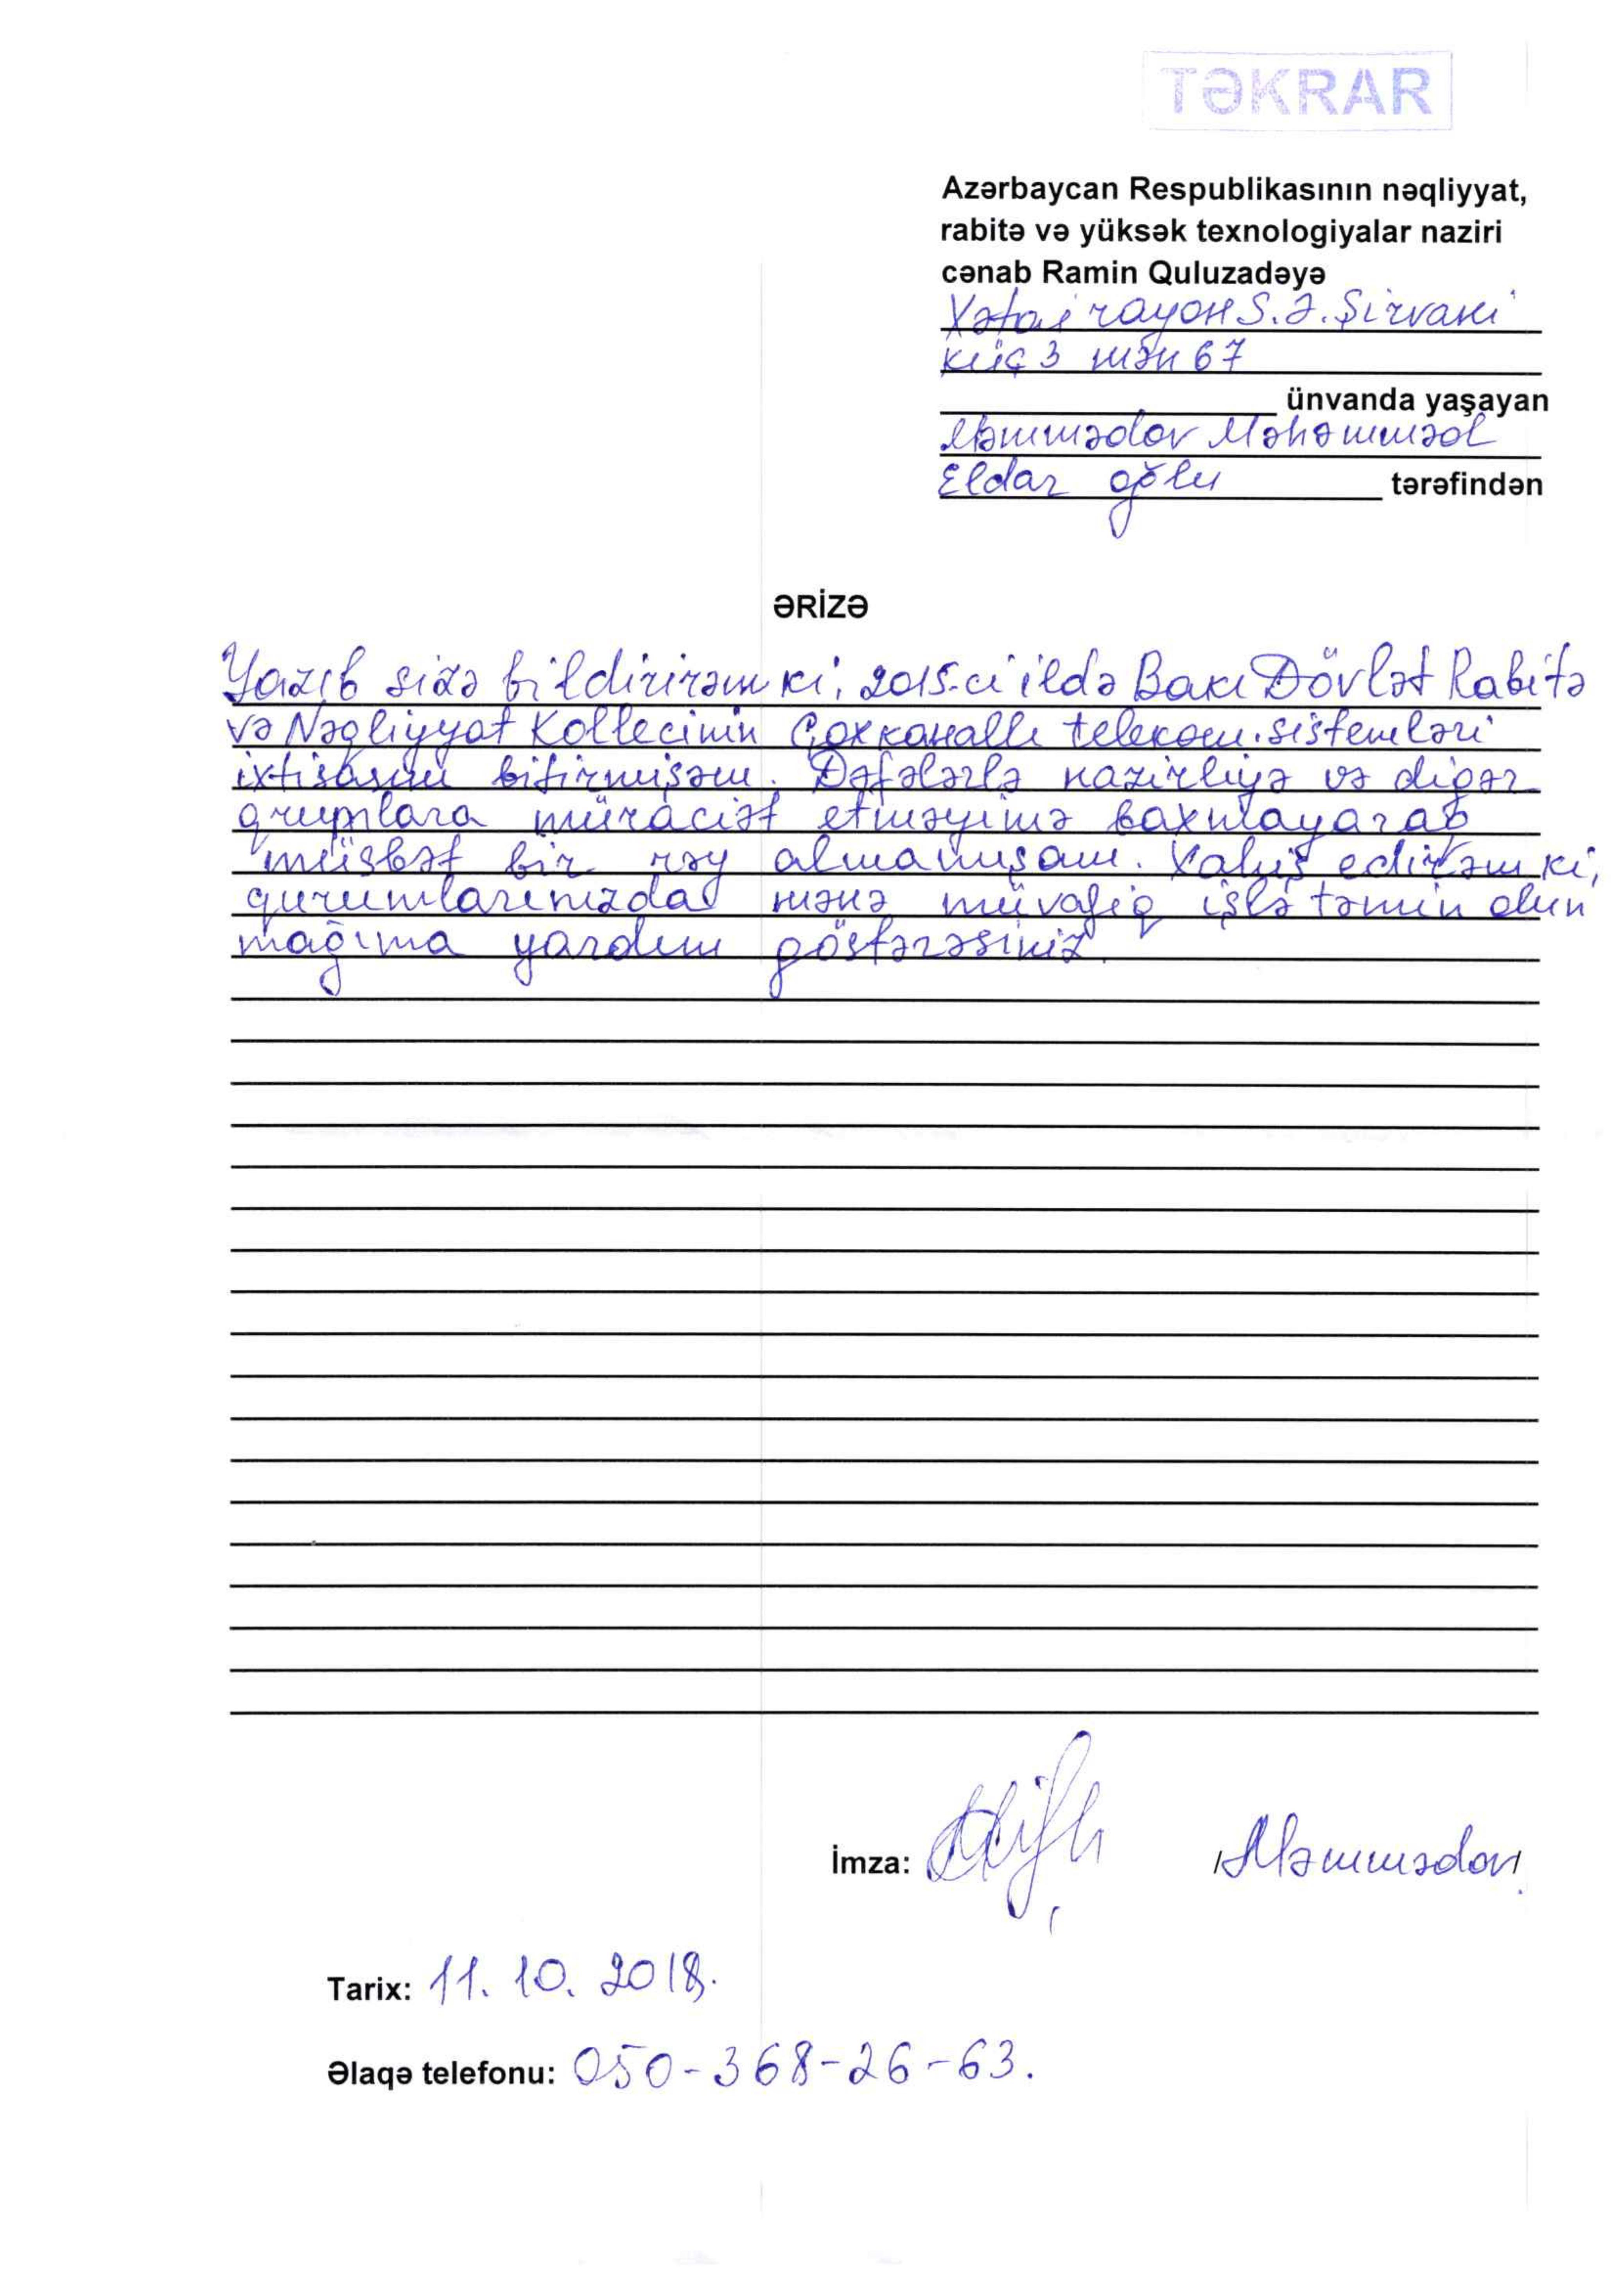 TƏKRAR
Azərbaycan Respublikasının nəqliyyat,
rabitə və yüksək texnologiyalar naziri
cənab Ramin Quluzadəyə
Xətai rayon S.Ə.Şirvani
küç 3 mən 67
ünvanda yaşayan
Məmmədov Məhəmməd
Eldar oğlu tərəfindən
ƏRİZƏ
Yazıb sizə bildirirəm ki, 2015-ci ildə Bakı Dövlət Rabitə
və Nəqliyyat Kollecinin Çoxkanallı telekom.sistemləri
ixtisasını bitirmişəm. Dəfələrlə nazirliyə və digər
qrumlara müraciət etməyimə baxmayaraq
müsbət bir rəy almamışam. Xahiş edirəm ki,
qurumlarınızda mənə müvafiq işlə təmin olun
mağıma yardım göstərəsiniz.
İmza: Məmmədov
Tarix: 11. 10. 2018.
Əlaqə telefonu: 050-368-26-63.